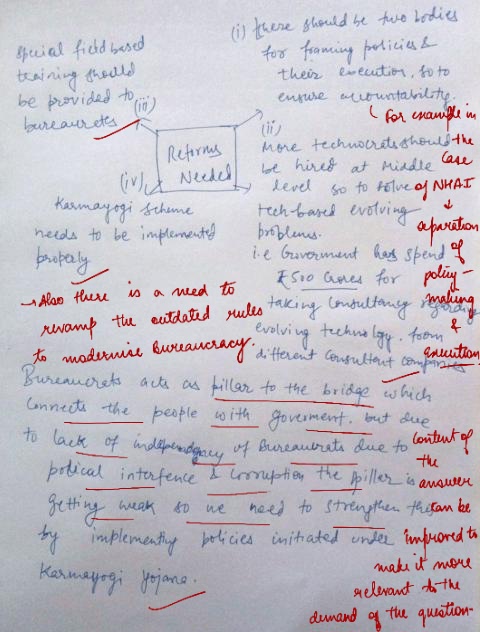 (i) there should be two bodies
for framing policies &
their execution. so to
ensure accountability.
(For example in
the
case
of NHAI
↓
separation
of
policy-
making
&
execution)
(ii)
More technocrats should
be hired at Middle
level so to solve
tech-based evolving
problems.
i.e Government has spend
₹500 Crores for
taking Consultancy regarding
evolving technology. from
different consultant companies
special field based
training should
be provided to
(iii)
bureaurets
Reforms
Needed
(iv)
Karmayogi Scheme
needs to be implemented
properly
→ Also there is a need to
revamp the outdated rules
to modernise Bureaucracy.
Bureaucrats acts as pillar to the bridge which
connects the people with goverment. but due
to lack of of Bureaucrats due to
potical interfence & Corruption the piller is
getting weak so we need to strengthen the
by implementing policies initiated under
Karmayogi Yojana.
content of
the
answer
can be
improved to
make it more
relevant to the
demand of the question-